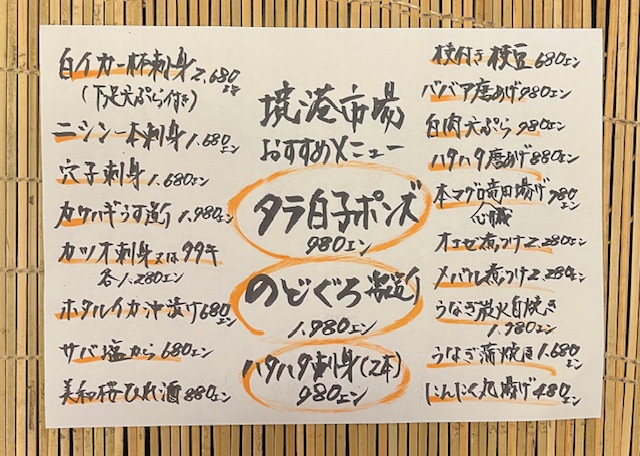 境港市場
おすすめメニュー
タラ白子ポンズ
980エン
のどぐろ
1.980エン
ハタハタ刺身(2本)
980エン
白イカ一杯刺身2.680エン
(下足天ぷら付き)
ニシン一本刺身1.680エン
穴子刺身1.680エン
カワハギうす造り1.980エン
カツオ刺身又はタタキ
各1.280エン
ホタルイカ沖漬け680エン
サバ塩から680エン
美和桜ひれ酒880エン
枝付き枝豆680エン
ババア唐あげ980エン
白肉天ぷら980エン
ハタハタ唐あげ880エン
本マグロ竜田揚げ980エン
心臓
オコゼ煮つけ2.280エン
メバル煮つけ2.280エン
うなぎ炭火白焼き
1.980エン
うなぎ蒲焼き1.680エン
にんにく丸揚げ480エン